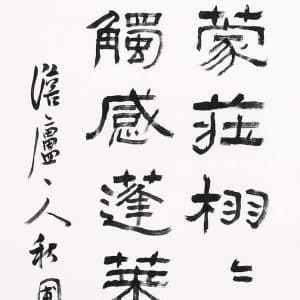 蒙莊栩〻
觸感蓬萊
澹廬 人秋